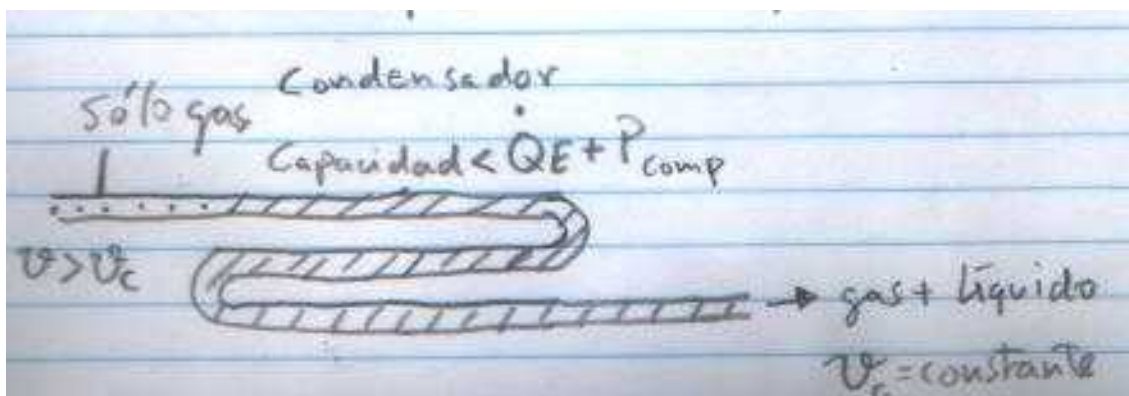 Condensador
Sólo gas
Capacidad < Q̇E + Pcomp
v > vc
→ gas + líquido
vc = constante